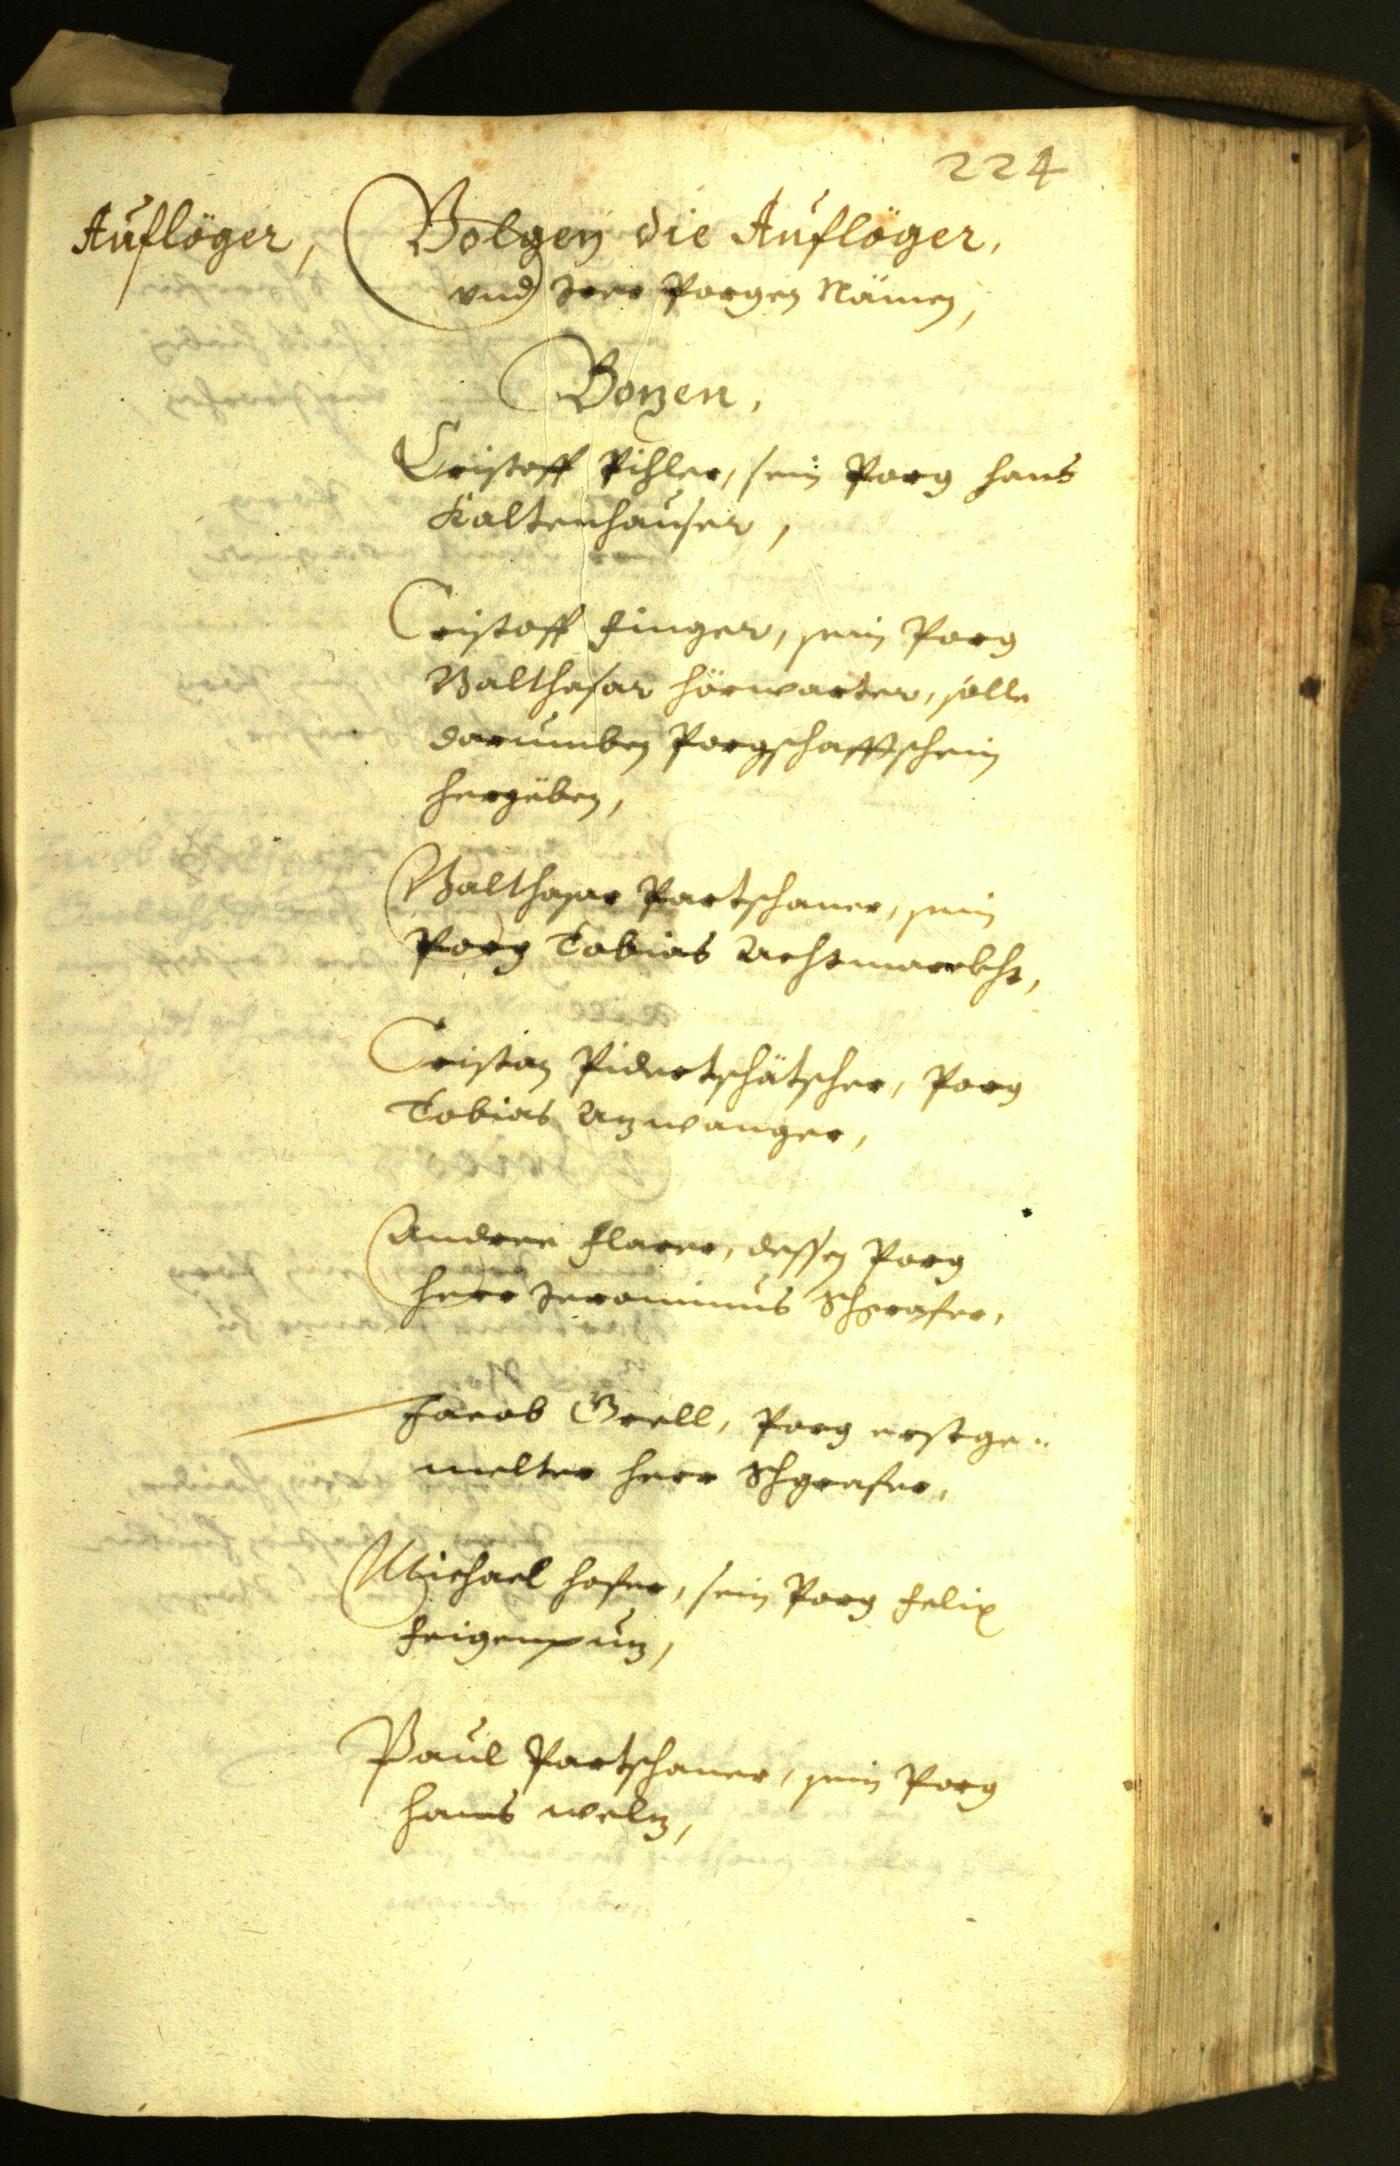 224
Auflöger,
Volgen die Auflöger,
vnd Irer Porgen Nämen,
Bozen,
Cristoff Pihler, sein Porg Hans
Kaltenhauser,
Cristoff Finger, sein Porg
Balthasar Hörwarter, solle
darumben Porgschafftschein
hergeben,
Balthasar Partschaner, sein
Porg Tobias Achtmarckht,
Cristan Pidertschätscher, Porg
Tobias Anzwanger,
Andree Flarer, dessen Porg
Herr Jeronimus Schgrafer,
Jacob Grell, Porg erstge-
melter Herr Schgrafer,
Michael Hofer, sein Porg Felix
Feigenpuz,
Paul Partschaner, sein Porg
Hanns Welz,